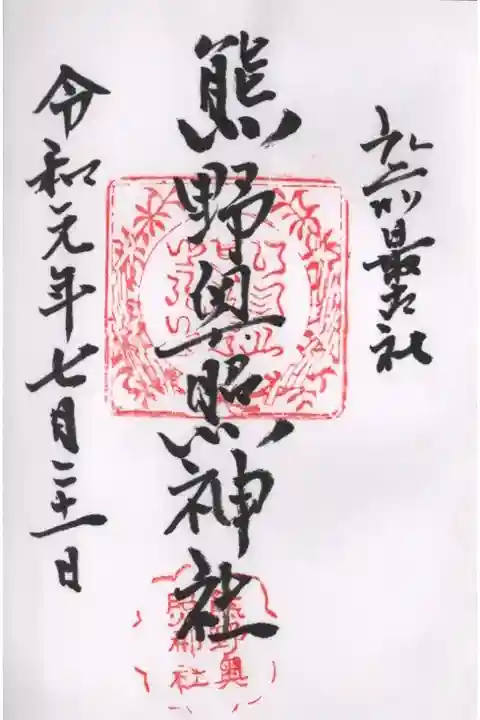 八上川最古社
熊野奥照神社
令和元年七月二十一日
熊野奥
照神社